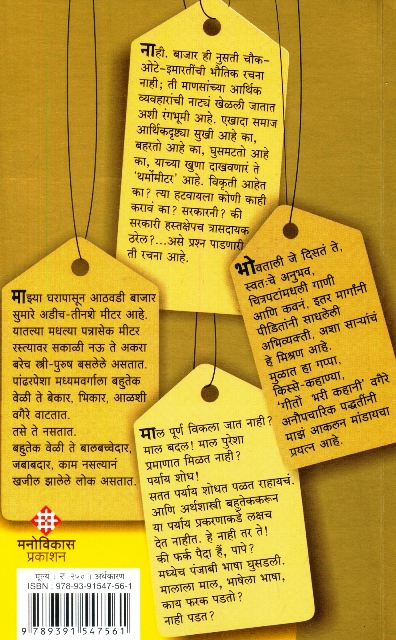 नाही. बाजार ही नुसती चौक-
ओटे-इमारतींची भौतिक रचना
नाही; ती माणसांच्या आर्थिक
व्यवहारांची नाट्यं खेळली जातात
अशी रंगभूमी आहे. एखादा समाज
आर्थिकदृष्ट्या सुखी आहे का,
बहरतो आहे का, घुसमटतो आहे
का, याच्या खुणा दाखवणारं ते
'थर्मोमीटर' आहे. विकृती आहेत
का? त्या हटवायला कोणी काही
करावं का? सरकारनी? की
सरकारी हस्तक्षेपच त्रासदायक
ठरेल?...असे प्रश्न पाडणारी
ती रचना आहे.
भोवताली जे दिसतं ते,
स्वतःचे अनुभव,
चित्रपटांमधली गाणी
आणि कवनं, इतर मार्गांनी
पीडितांनी साधलेली
अभिव्यक्ती, अशा साऱ्यांचं
हे मिश्रण आहे.
मुळात हा गप्पा,
किस्से-कहाण्या,
'गीतों भरी कहानी' वगैरे
अनौपचारिक पद्धतींनी
माझं आकलन मांडायचा
प्रयत्न आहे.
माझ्या घरापासून आठवडी बाजार
सुमारे अडीच-तीनशे मीटर आहे.
यातल्या मधल्या पन्नासेक मीटर
रस्त्यावर सकाळी नऊ ते अकरा
बरेच स्त्री-पुरुष बसलेले असतात.
पांढरपेशा मध्यमवर्गाला बहुतेक
वेळी ते बेकार, भिकार, आळशी
वगैरे वाटतात.
तसे ते नसतात.
बहुतेक वेळी ते बालबच्चेदार,
जबाबदार, काम नसल्यानं
खजील झालेले लोक असतात.
माल पूर्ण विकला जात नाही?
माल बदल! माल पुरेशा
प्रमाणात मिळत नाही?
पर्याय शोध!
सतत पर्याय शोधत पळत राहायचं.
आणि अर्थशास्त्री बहुतेककरून
या पर्याय प्रकरणाकडे लक्षच
देत नाहीत. हे नाही तर ते!
की फर्क पैदा हैं, पापे?
मध्येच पंजाबी भाषा घुसडली.
मालाला माल, भाषेला भाषा,
काय फरक पडतो?
नाही पडत?
मनोविकास
प्रकाशन
मूल्य : ₹ २५० : अर्थकारण
ISBN : 978-93-91547-56-1
9 789391 547561